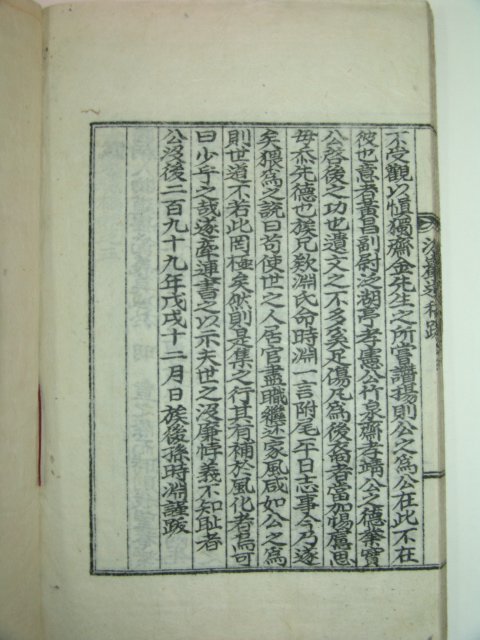 不受觀以愼獨齋金先生之所嘗講揚則公之爲公在此不在
彼也意者黃昌副尉泛湖亭孝憲公竹泉齋孝端公之德業實
公啓後之功也遺文之不多奚足傷凡爲後裔者當加惕慮思
毋忝先德也族兄欵淵氏命時淵一言附尾平日志事今乃遂
矣猥爲之說曰苟使世之人居官盡職繼述家風咸如公之爲
則世道不若此罔極矣然則是集之行其有補於風化者烏可
曰少乎之哉遂牽連書之以示夫世之沒廉悖義不知恥者
公沒後二百九十九年戊戌十二月日族後孫時淵謹跋
遺稿跋